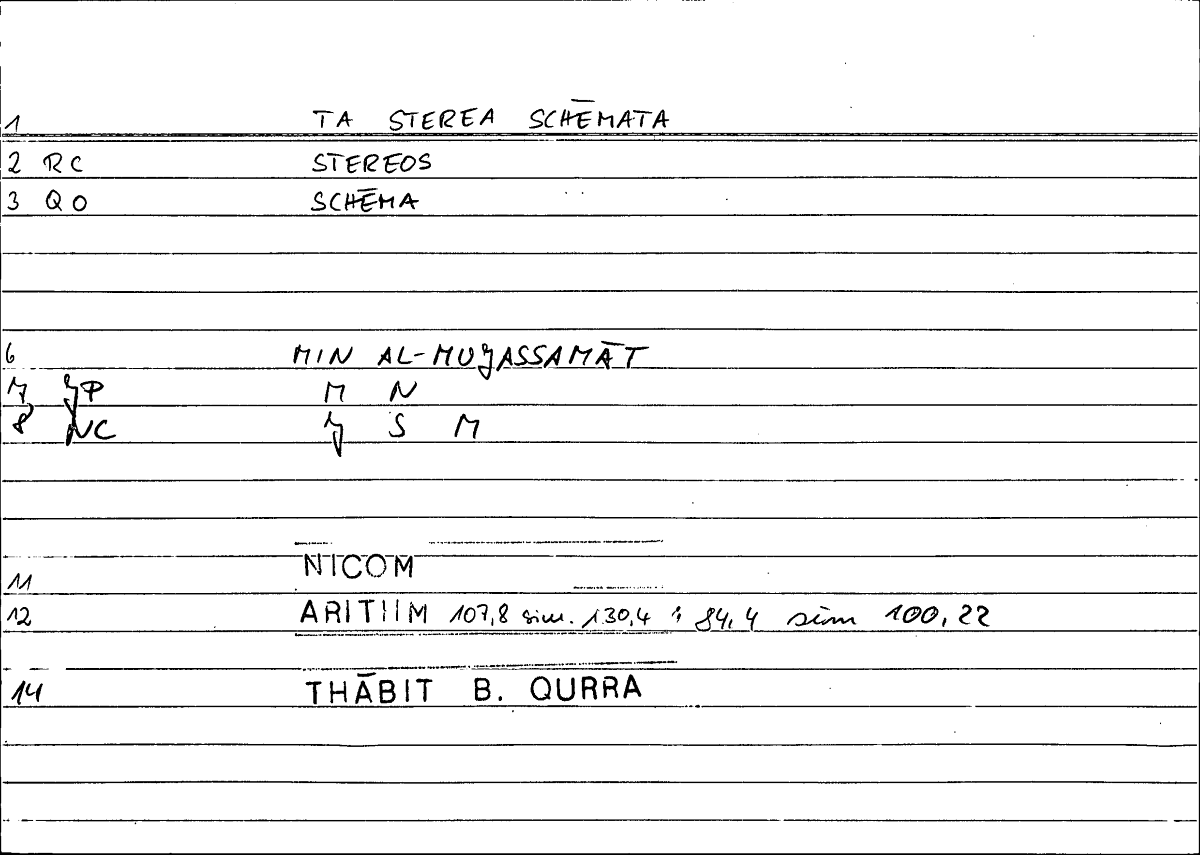 1 TA STEREA SCHĒMATA
2 RC STEREOS
3 QO SCHĒMA
6 MIN AL-MUǧASSAMĀT
7 JP M N
8 NC J S M
11 NICOM
12 ARITHM 107,8 sim. 130,4 ; 84,4 sim 100,22
14 THĀBIT B. QURRA